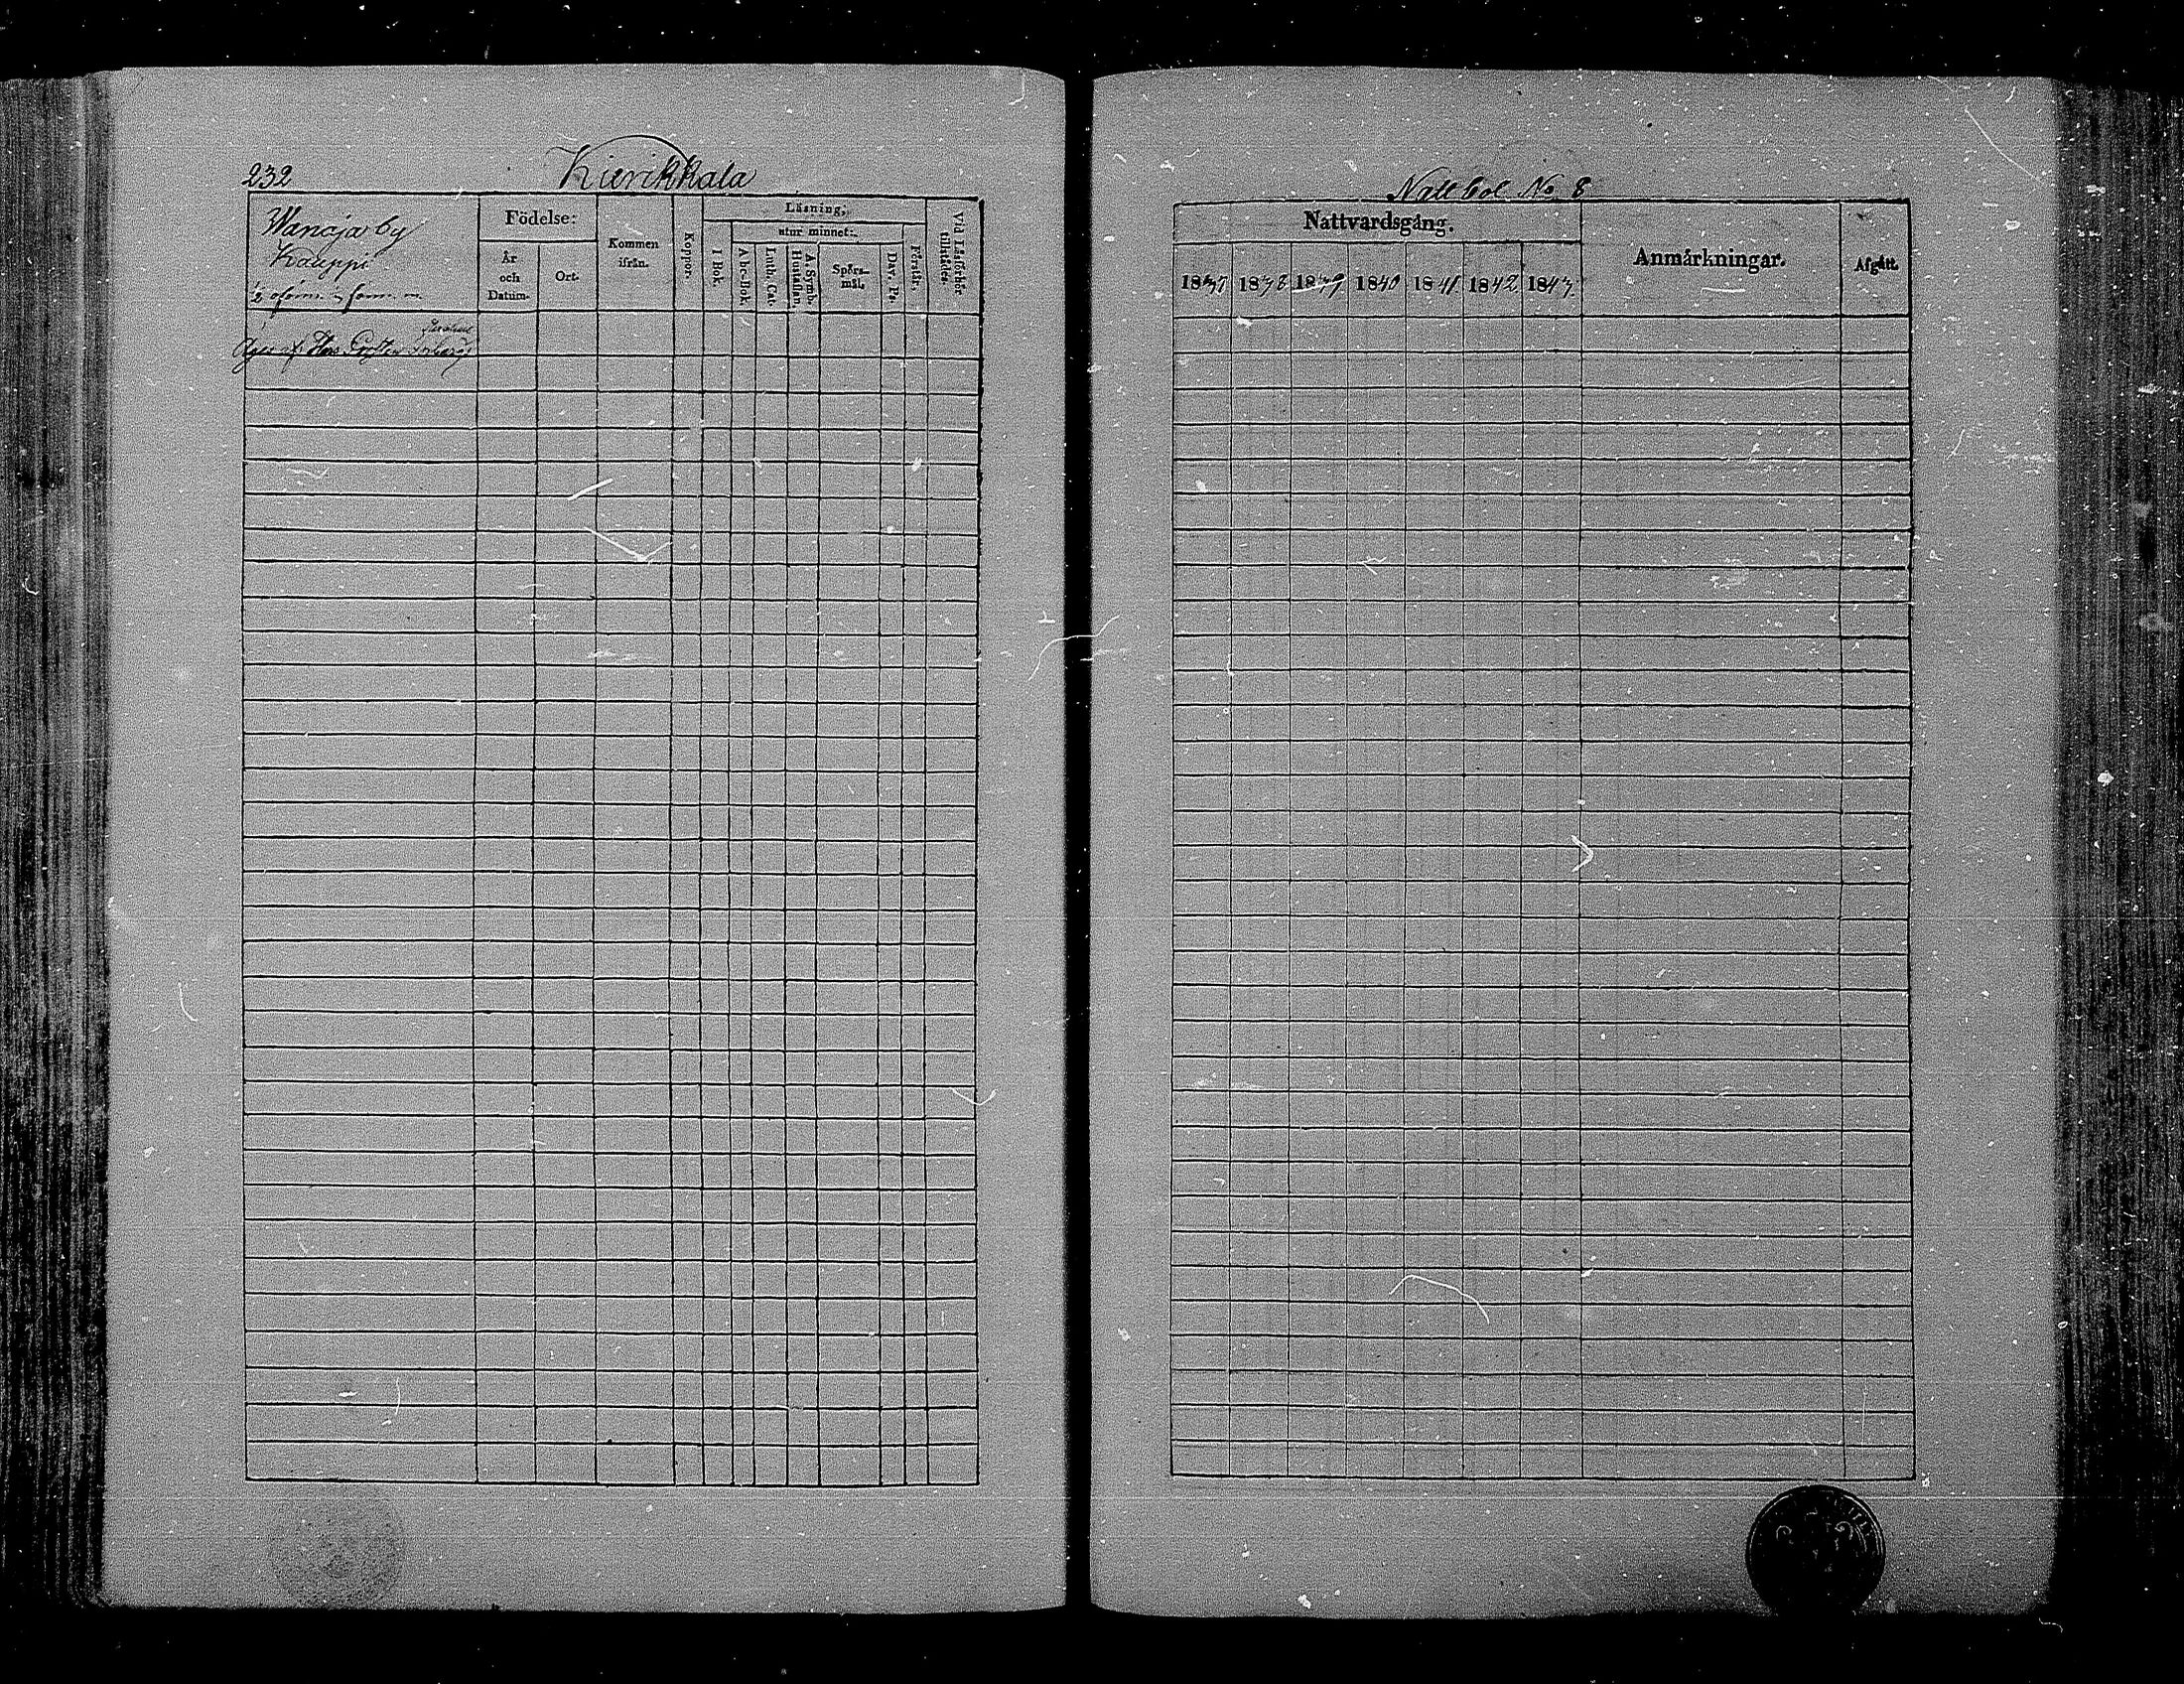 232
Kierikkala
Wanaja by
Kauppi
Födelse:
År
och
Datum.
Ort.
Kommen
ifrån.
Koppor.
Läsning;
utur minnet:
I Bok.
Abc-Bok.
Luth. Cat.
Hustaflan.
A. Symb.
Spörs-
mål.
Dav. Ps.
Förstår.
Vid Läsförhör
tillstädes.
Äges af
Natt Col. No 8
Nattvardsgång.
1837 1838 1839 1840 1841 1842 1843
Anmärkningar.
Afgått.